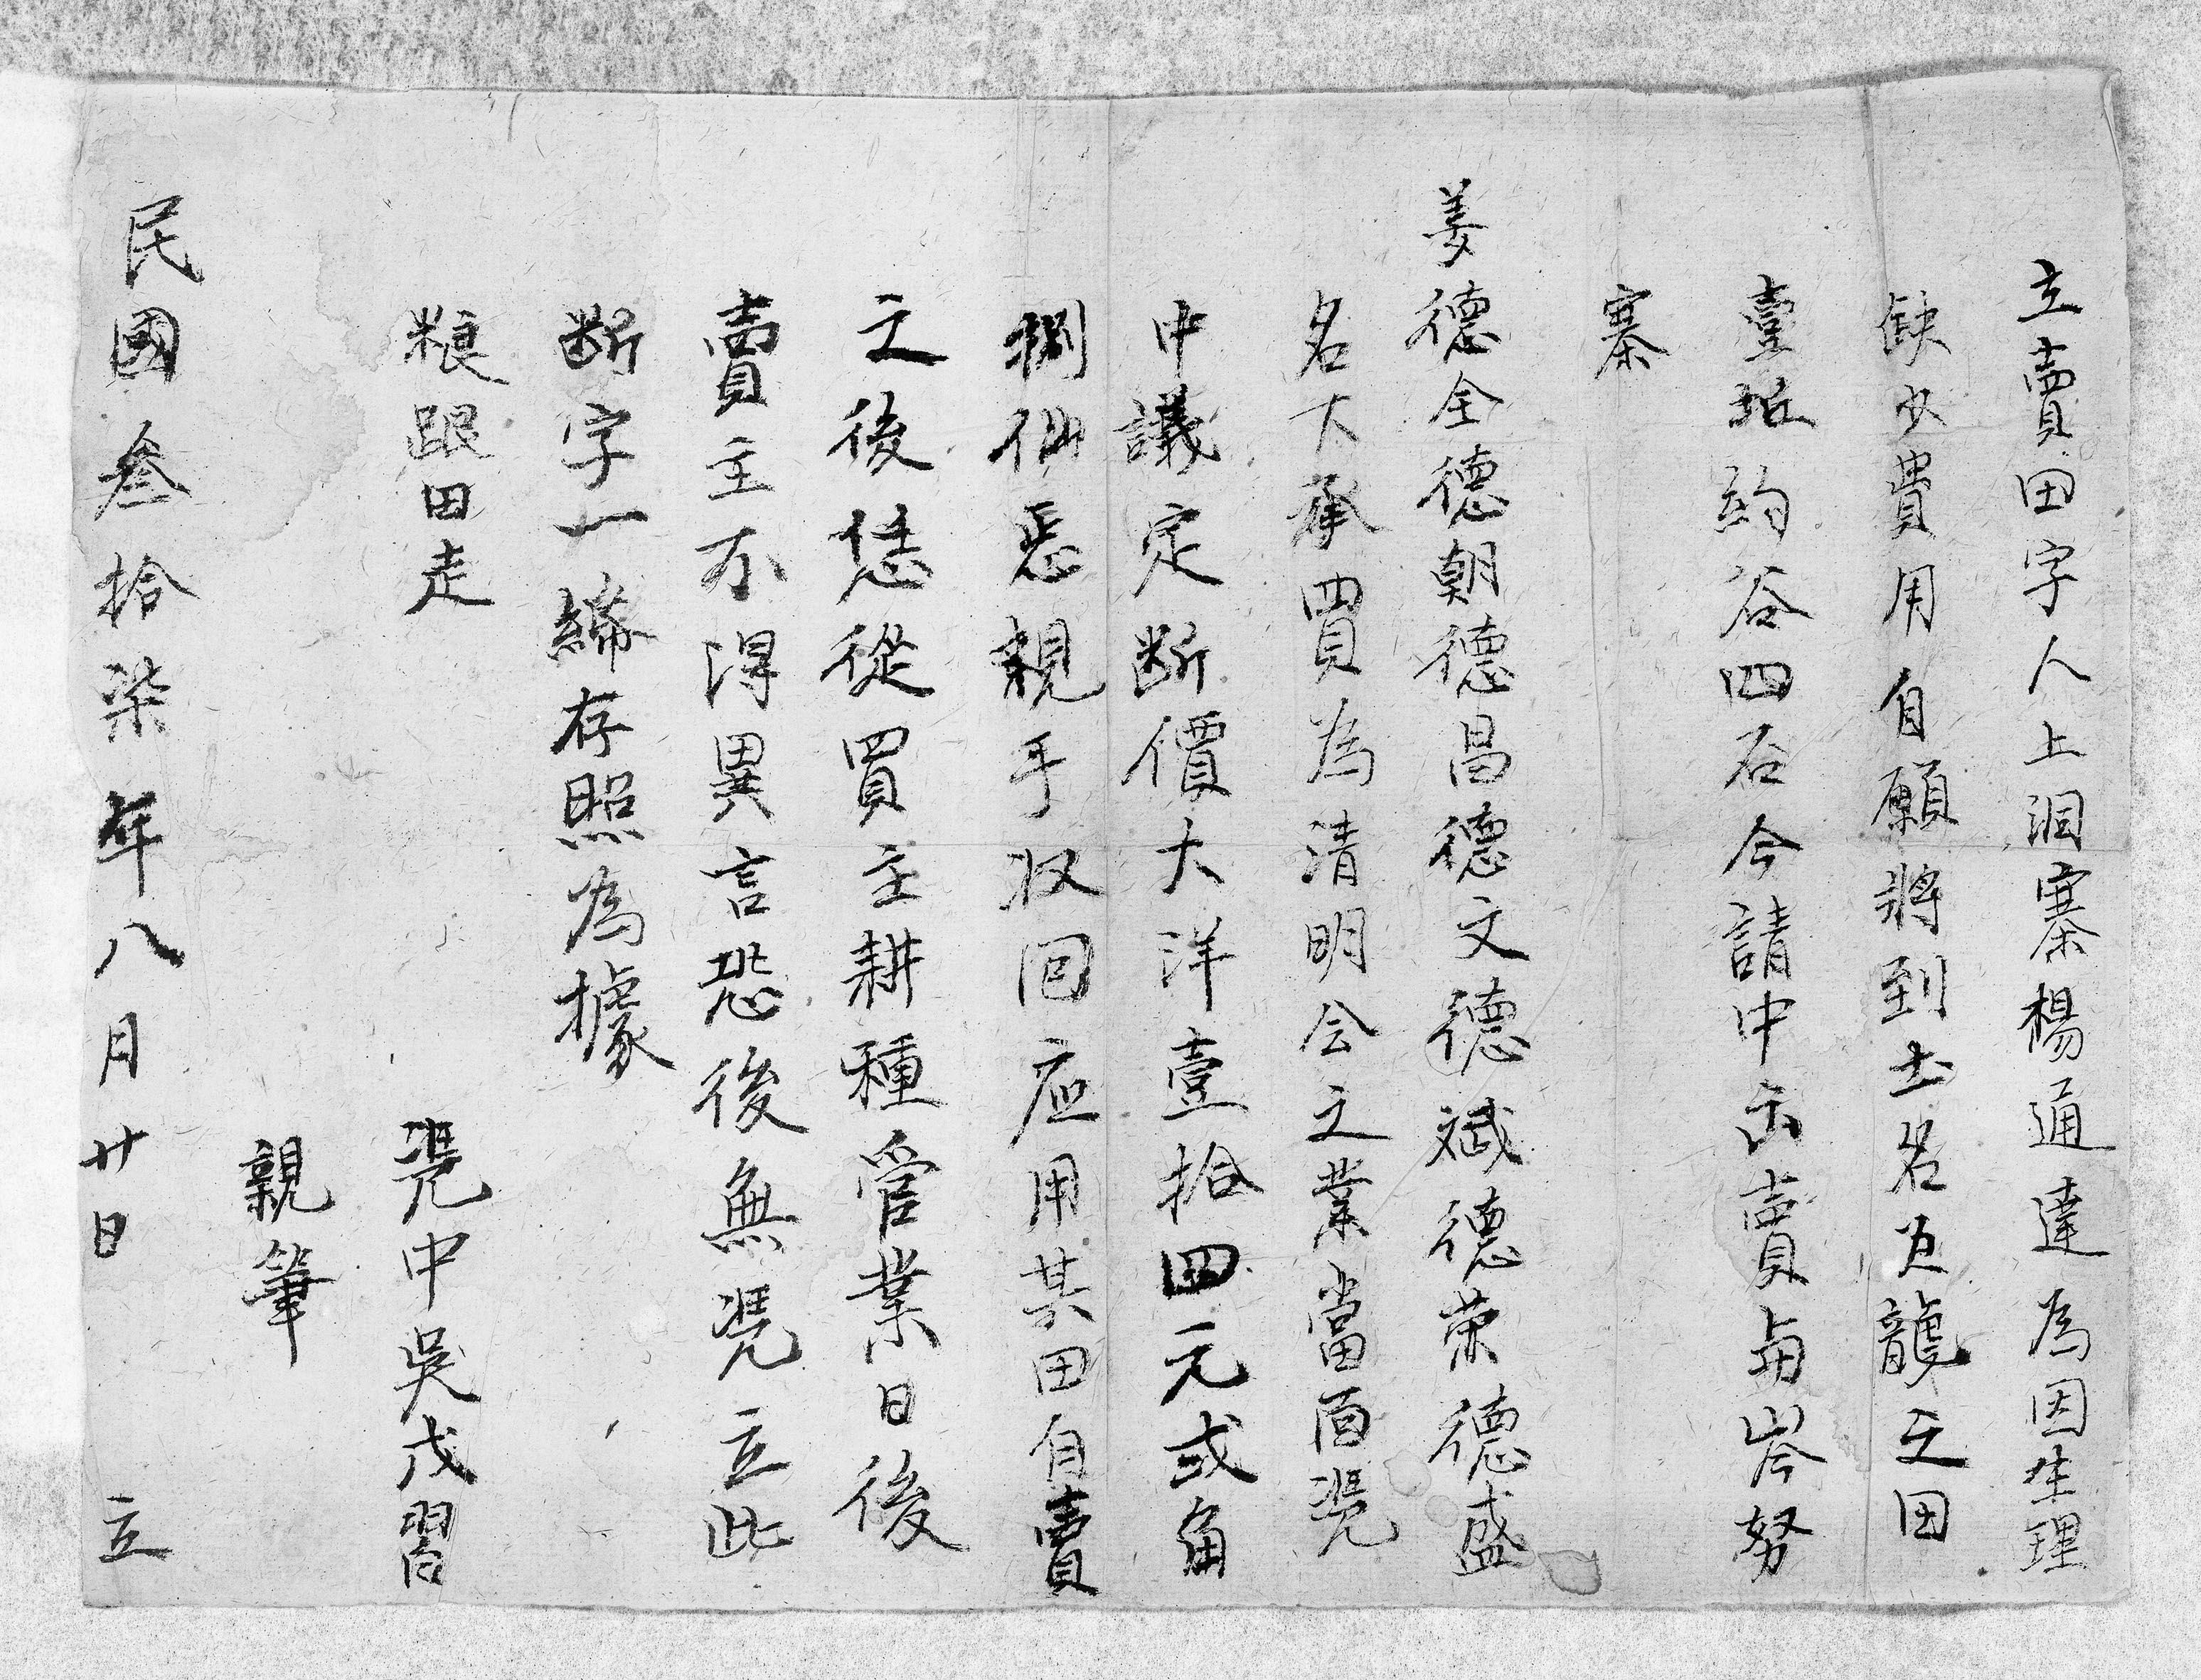 立賣田字人上洞寨楊通達為因生理
缺少費用自願將到土名為龍之田
壹坵約谷四石今請中出賣與岑努
寨
姜德全德朝德昌德文德斌德荣德盛
名下承買為清明会之業當面凴
中議定断價大洋壹拾四元弍角
捌仙悉親手収回应用其田自賣
之後恁從買主耕種管業日後
賣主不淂異言恐後無凴立此
断字一締存照為據
粮跟田走
凴中吳戊習
親筆
民國叁拾柒年八月廿日立